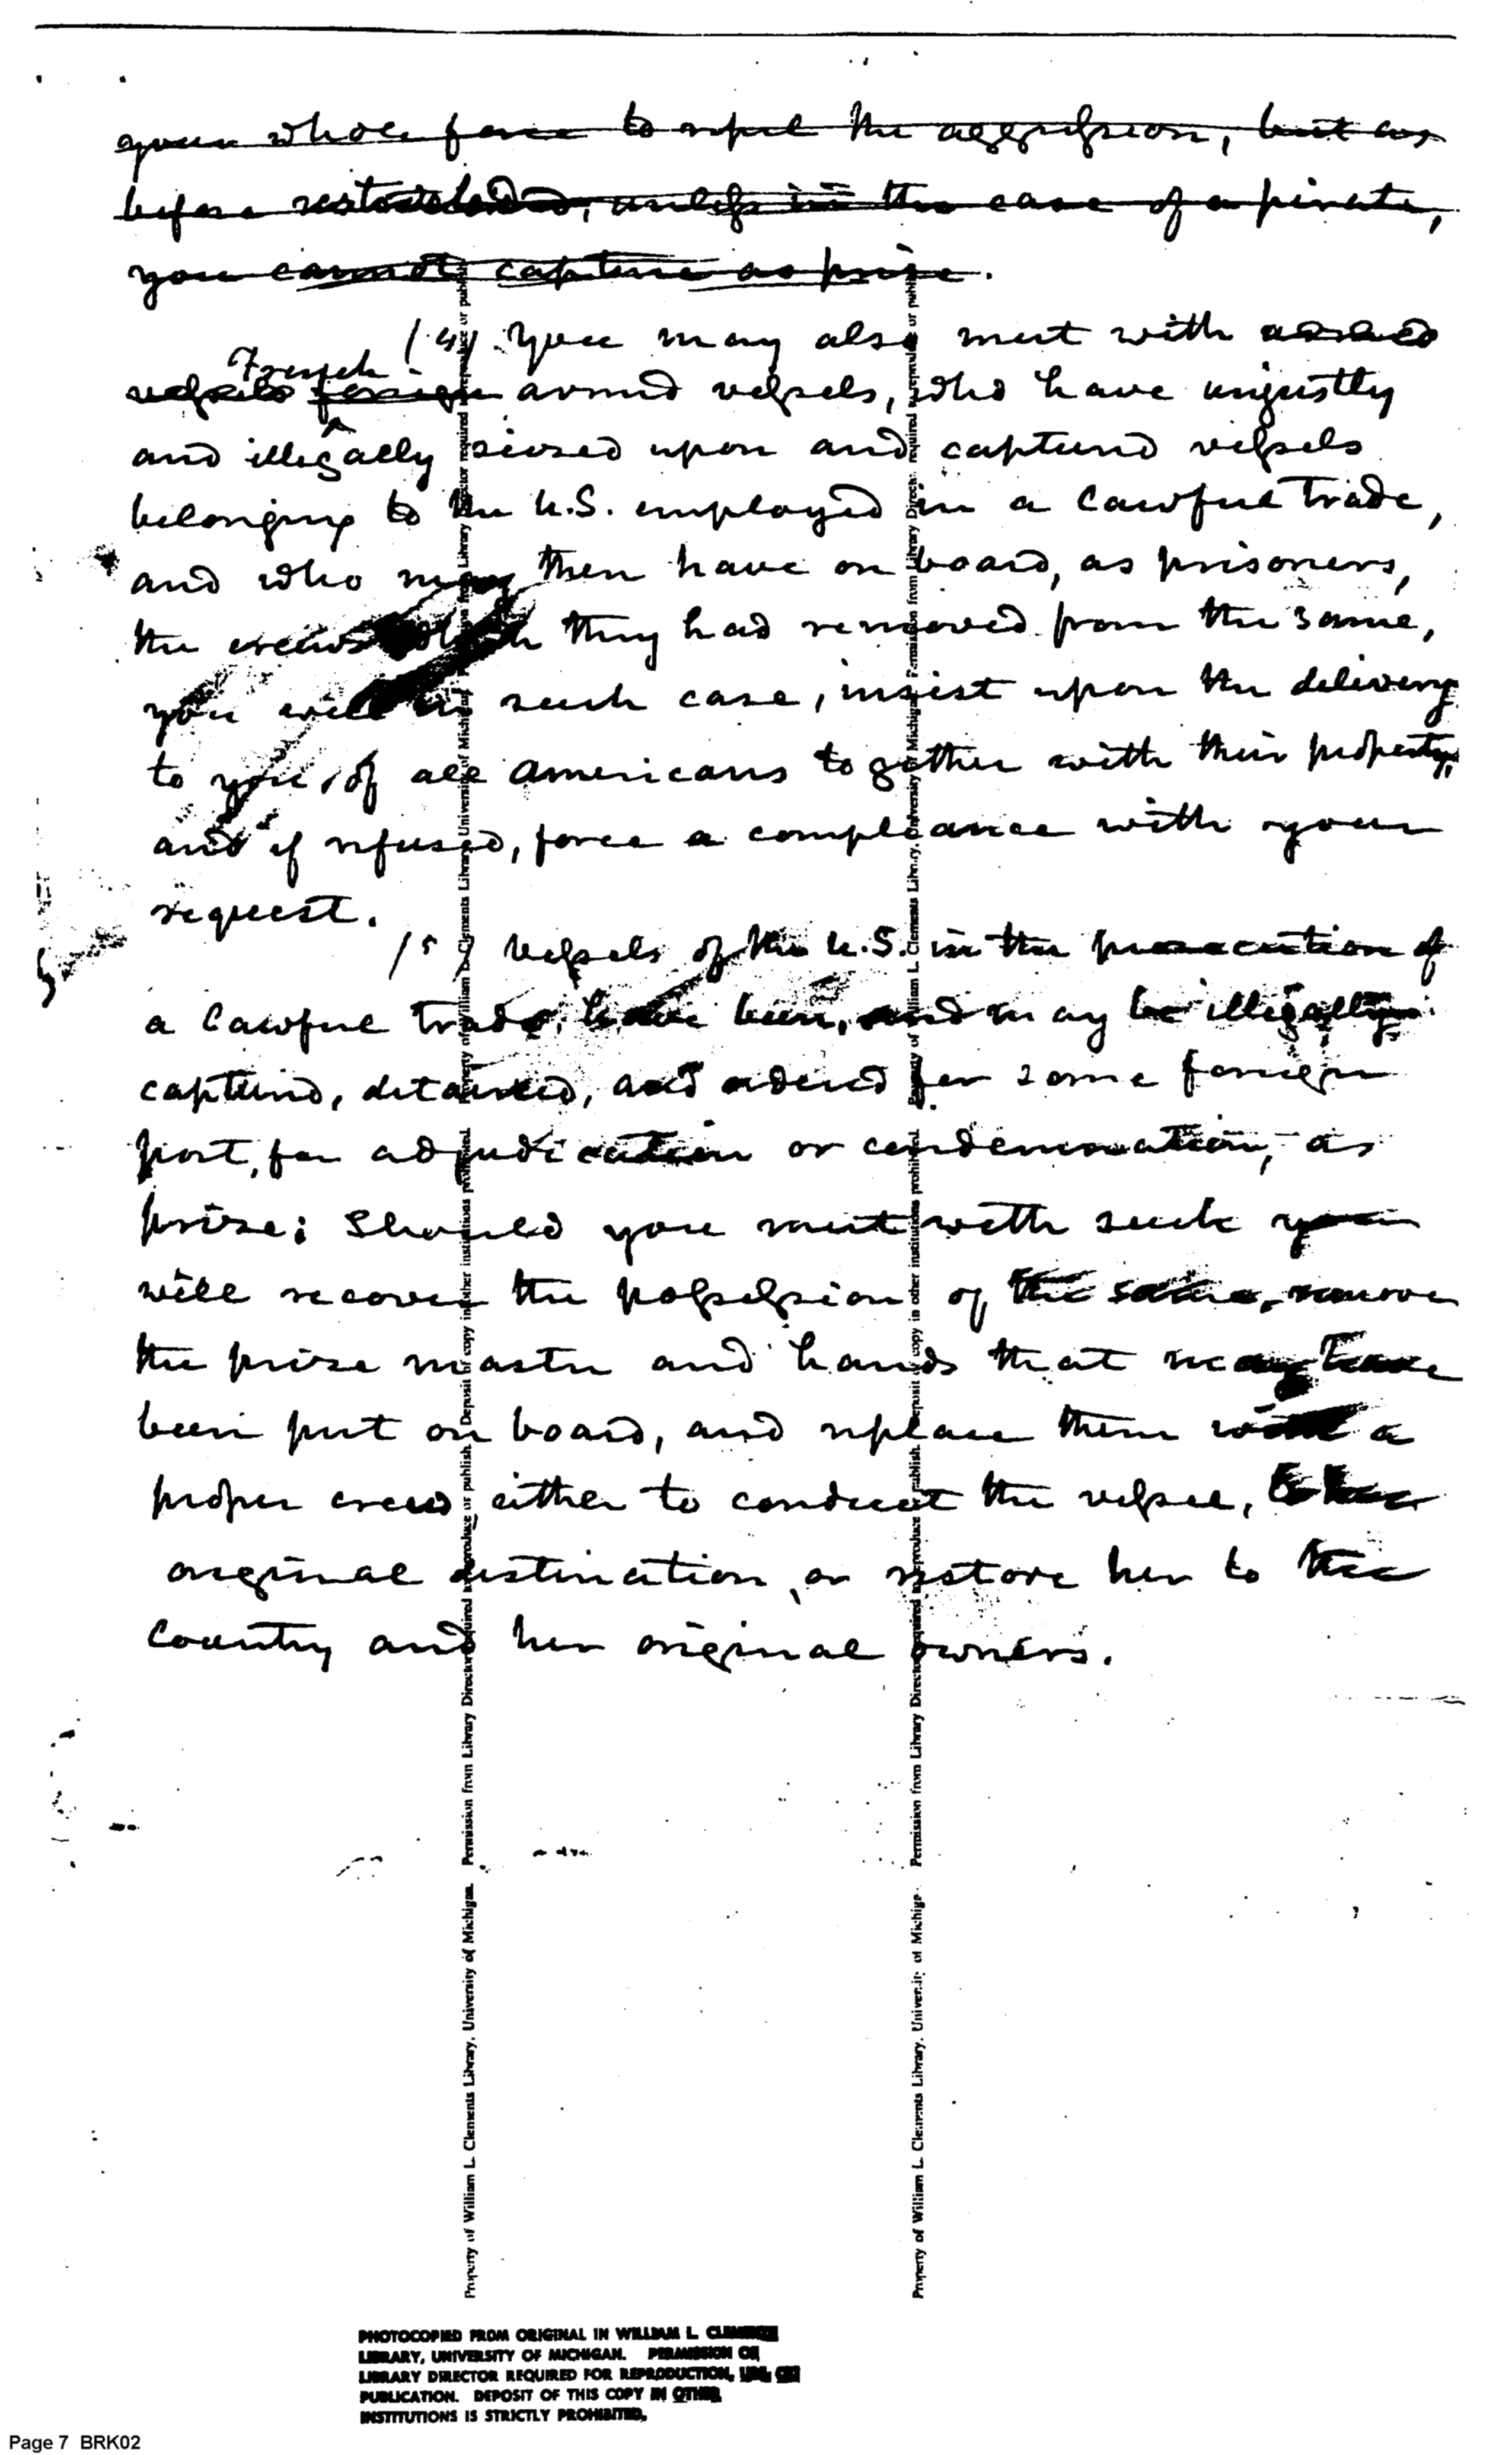 your whole force to repel the aggression, but as
before restricted, unless in the case of a pirate,
you cannot capture as prize.
14) You may also meet with armed
French
vessels foreign armed vessels, who have unjustly
and illegally siezed upon and captured vessels
belonging to the U.S. employed in a lawful trade,
and who may then have on board, as prisoners,
the crews which they had removed from the same,
you will in such case, insist upon the delivery
to you, of all Americans together with their property,
and if refused, force a compliance with your
request.
15) Vessels of the U.S. in the prosecution of
a lawful trade, have been, and may be illegally
captured, detained, and ordered for some foreign
port, for adjudication or condemnation, as
prize; Should you meet with such you
will recover the possession of the same, remove
the prize master and hands that may have
been put on board, and replace them with a
proper crew either to conduct the vessel, to her
original destination, or restore her to the
Country and her original owners.
Property of William L. Clements Library, University of Michigan. Permission from Library Director required to reproduce or publish. Deposit of copy in other institutions prohibited.
Property of William L. Clements Library, University of Michigan. Permission from Library Director required to reproduce or publish. Deposit of copy in other institutions prohibited.
PHOTOCOPIED FROM ORIGINAL IN WILLIAM L. CLEMENTS
LIBRARY, UNIVERSITY OF MICHIGAN. PERMISSION OF
LIBRARY DIRECTOR REQUIRED FOR REPRODUCTION, USE OR
PUBLICATION. DEPOSIT OF THIS COPY IN OTHER
INSTITUTIONS IS STRICTLY PROHIBITED.
Page 7 BRK02